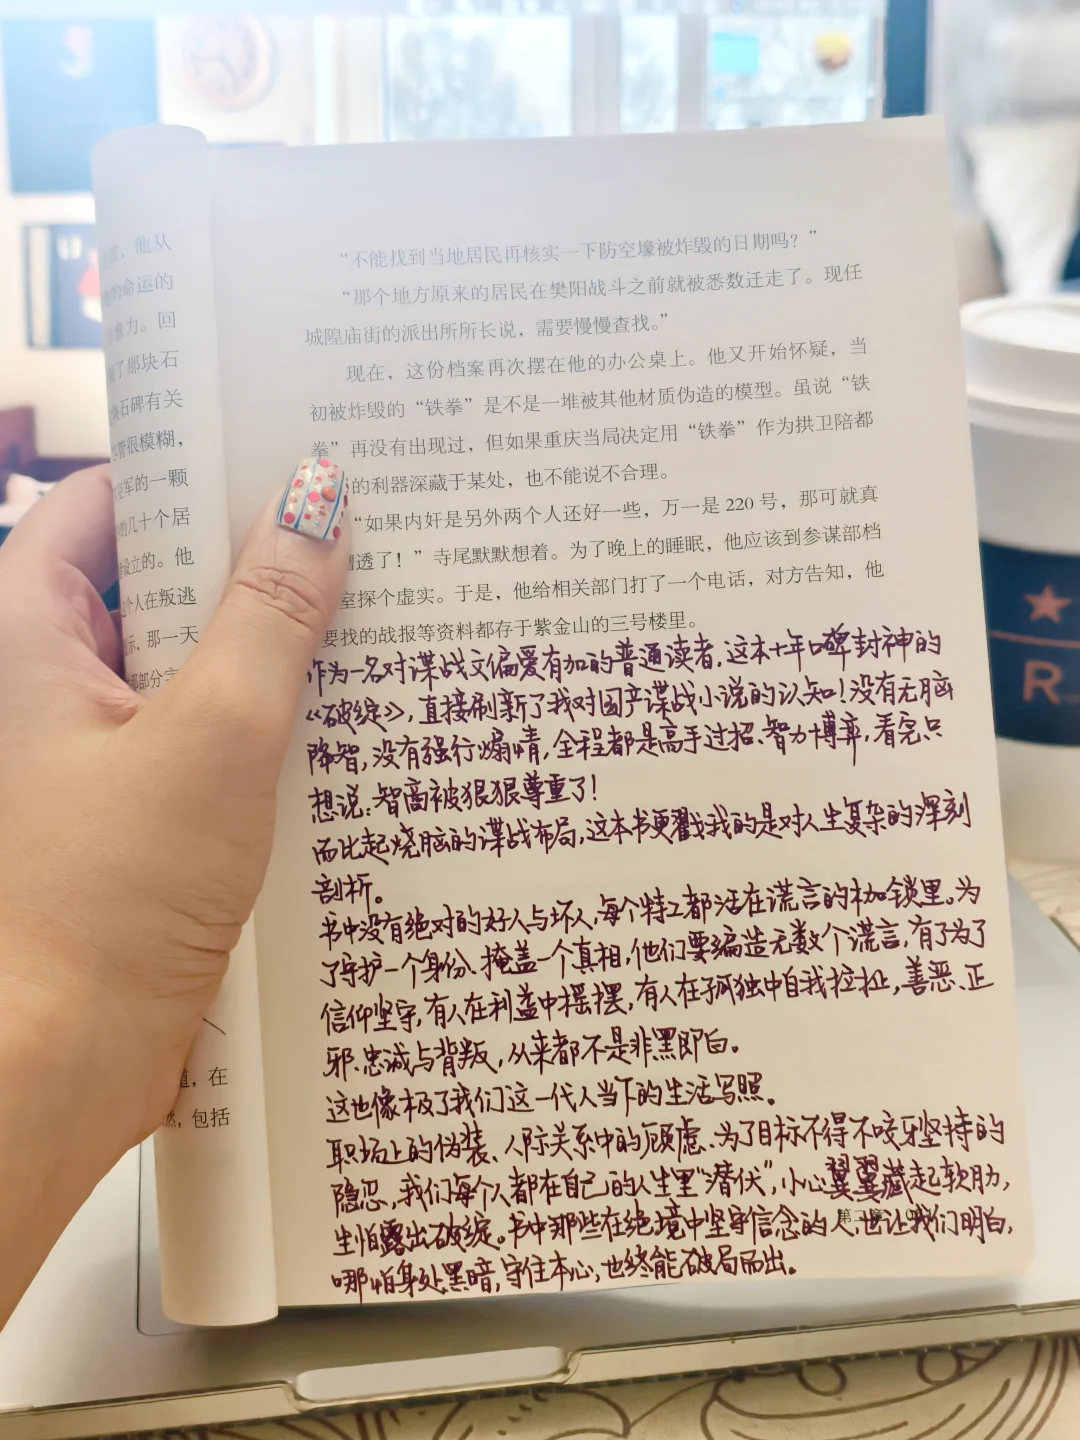 ，他从
的命运的
意力。回
了那块石
石碑有关
管很模糊，
空军的一颗
的几十个居
最立的。他
个人在叛逃
示，那一天
那部分
道，在
然，包括
“不能找到当地居民再核实一下防空壕被炸毁的日期吗？”
“那个地方原来的居民在樊阳战斗之前就被悉数迁走了。现任
城隍庙街的派出所所长说，需要慢慢查找。”
现在，这份档案再次摆在他的办公桌上。他又开始怀疑，当
初被炸毁的“铁拳”是不是一堆被其他材质伪造的模型。虽说“铁
拳”再没有出现过，但如果重庆当局决定用“铁拳”作为拱卫陪都
的利器深藏于某处，也不能说不合理。
“如果内奸是另外两个人还好一些，万一是220号，那可就真
糟透了！”寺尾默默想着。为了晚上的睡眠，他应该到参谋部档
室探个虚实。于是，他给相关部门打了一个电话，对方告知，他
要找的战报等资料都存于紫金山的三号楼里。
作为一名对谍战文偏爱有加的普通读者，这本十年口碑封神的
《破绽》，直接刷新了我对国产谍战小说的认知！没有无脑
降智，没有强行煽情，全程都是高手过招、智力博弈，看完只
想说：智商被狠狠尊重了！
而比起烧脑的谍战布局，这本书更戳我的是对人生复杂的深刻
剖析。
书中没有绝对的好人与坏人，每个特工都活在谎言的枷锁里。为
了守护一个身份、掩盖一个真相，他们要编造无数个谎言，有了为了
信仰坚守，有人在利益中摇摆，有人在孤独中自我拉扯，善恶、正
邪、忠诚与背叛，从来都不是非黑即白。
这也像极了我们这一代人当下的生活写照。
职场上的伪装、人际关系中的顾虑、为了目标不得不咬牙坚持的
隐忍，我们每个人都在自己的人生里“潜伏”，小心翼翼藏起软肋，
生怕露出破绽。书中那些在绝境中坚守信念的人，也让我们明白，
哪怕身处黑暗，守住本心，也终能破局而出。
第二章
R